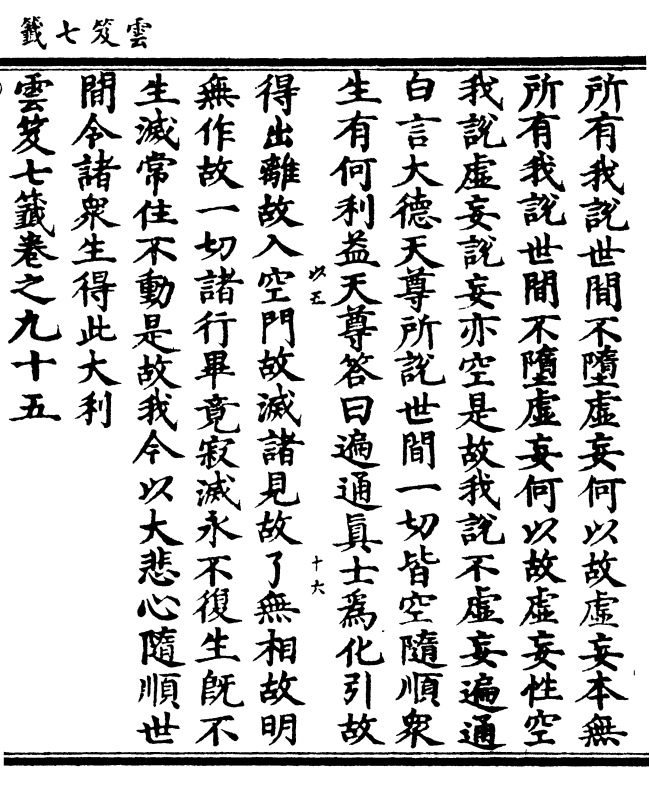 雲笈七籤
所有我說世間不墮虛妄何以故虛妄本無
所有我說世間不墮虛妄何以故虛妄性空
我說虛妄說妄亦空是故我說不虛妄遍通
白言大德天尊所說世間一切皆空隨順衆
生有何利益天尊答曰遍通眞士爲化引故
以五
十六
得出離故入空門故滅諸見故了無相故明
無作故一切諸行畢竟寂滅永不復生旣不
生滅常住不動是故我今以大悲心隨順世
間令諸衆生得此大利
雲笈七籤卷之九十五